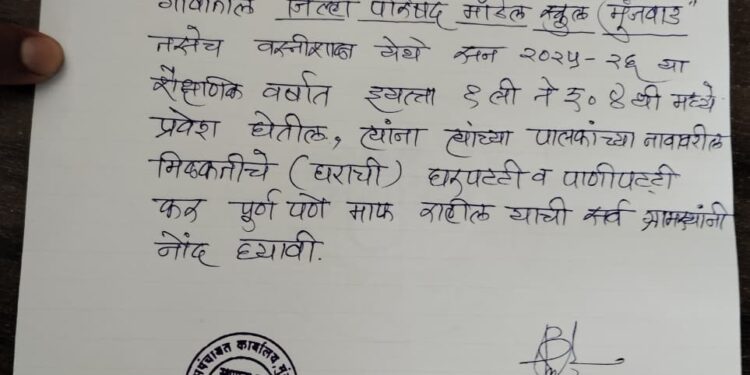 गावातील जिल्हा परिषद मॉडेल स्कुल (मुंजवाड"
तसेच वस्तीशाळा येथे सन २०२५-२६ या
शैक्षणिक वर्षात इयत्ता १ ली ते इ. ४ थी मध्ये
प्रवेश घेतील, त्यांना त्यांच्या पालकांच्या नावावरील
मिळकतीचे (घराची) घरपट्टी व पाणीपट्टी
कर पुर्ण पणे माफ राहील याची सर्व ग्रामस्थांनी
नोंद घ्यावी.
पंचायत कार्यालय,